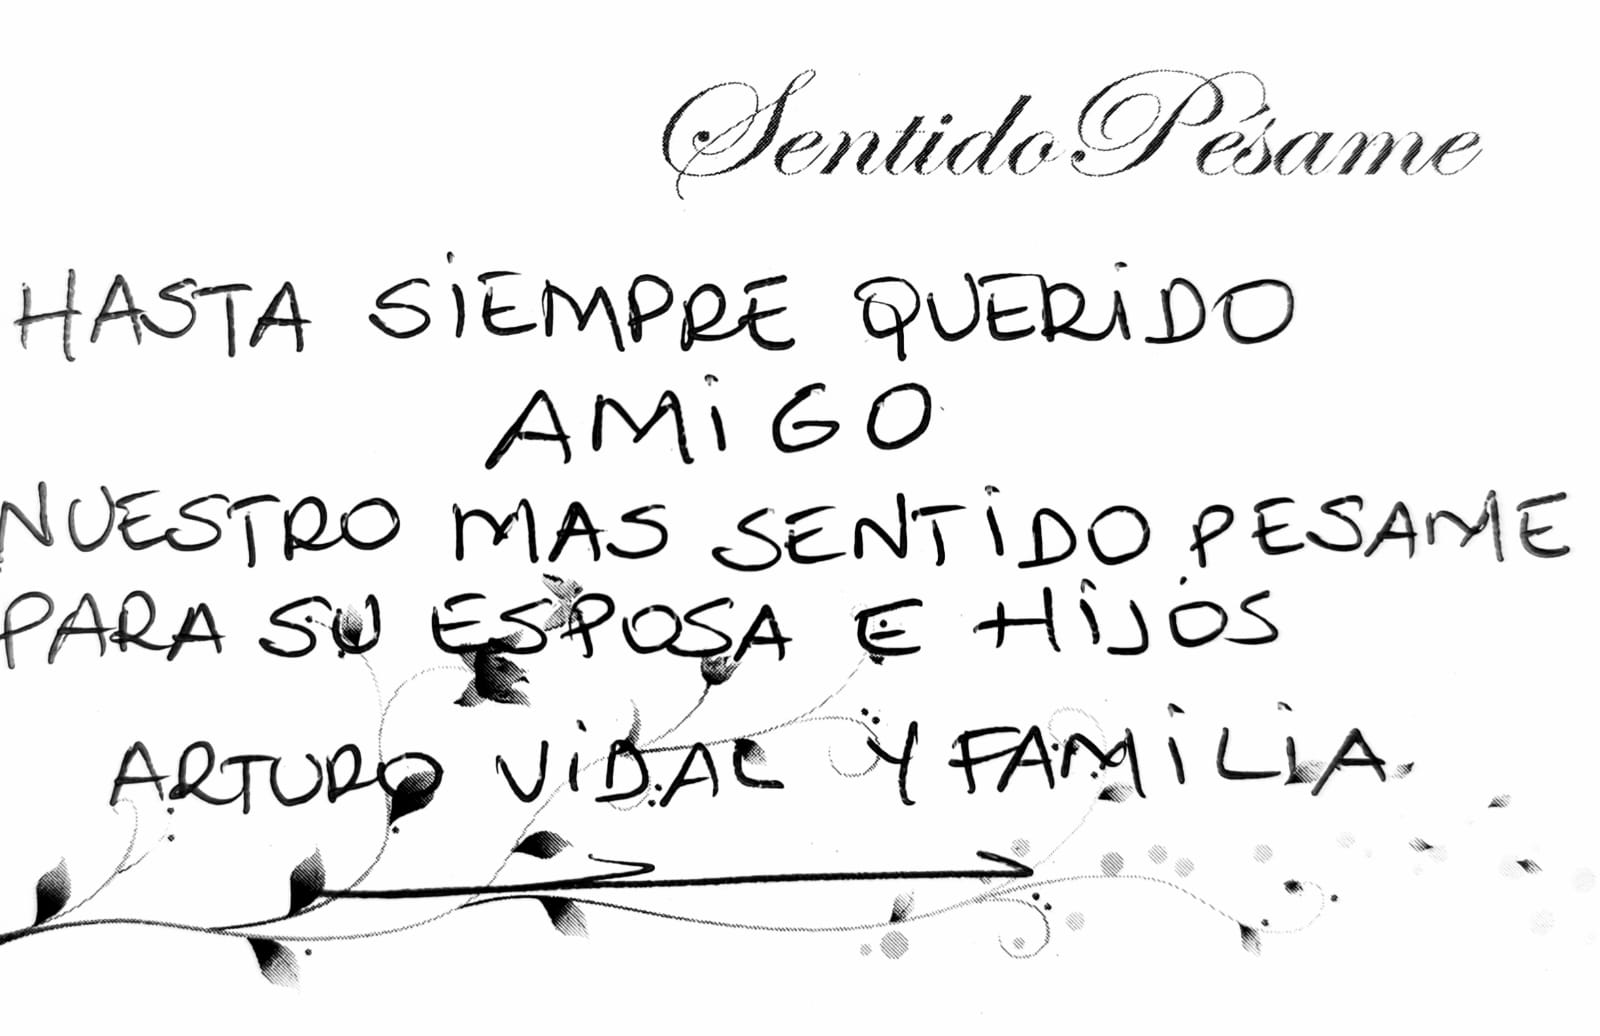 Sentido Pésame
HASTA SIEMPRE QUERIDO
AMIGO
NUESTRO MAS SENTIDO PESAME
PARA SU ESPOSA E HIJOS
ARTURO VIDAL Y FAMILIA